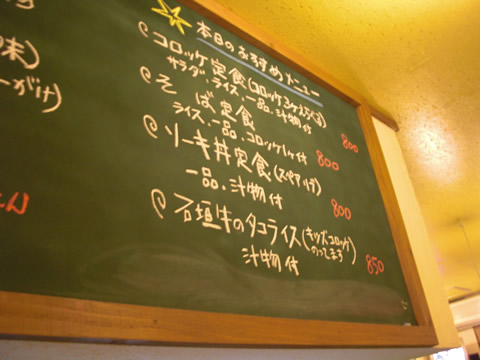 本日のおすすめメニュー
コロッケ定食(コロッケ3ケえらべる)
サラダ、ライス、一品、汁物付
800
そば定食
ライス、一品、コロッケ1ケ付
800
ソーキ丼定食(スペアリブ)
一品、汁物付
800
石垣牛のタコライス(キッズコロッケのってます)
汁物付
850
末)
ーがけ)